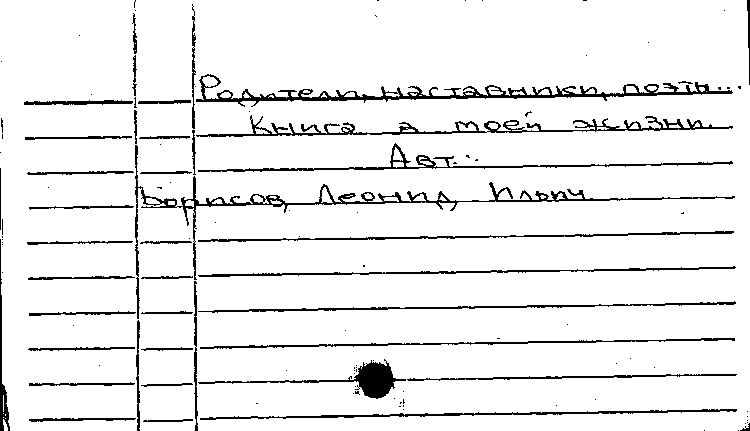 Родители, наставники, поэты...
Книга в моей жизни.
Авт.:
Борисов, Леонид Ильич